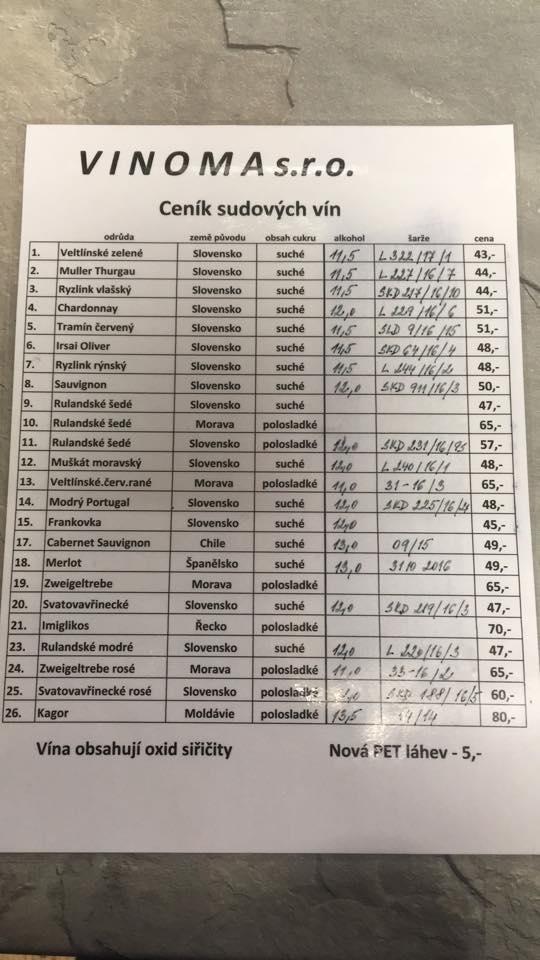 VINOMA s.r.o.
Ceník sudových vín
odrůda země původu obsah cukru alkohol šarže cena
1. Veltlínské zelené Slovensko suché 11,5 L 322/17/1 43,-
2. Muller Thurgau Slovensko suché 11,5 L 227/16/7 44,-
3. Ryzlink vlašský Slovensko suché 11,5 SKD 217/16/10 44,-
4. Chardonnay Slovensko suché 12,0 L 229/16/6 51,-
5. Tramín červený Slovensko suché 11,5 9/16/15 51,-
6. Irsai Oliver Slovensko suché 11,5 SKD 64/16/4 48,-
7. Ryzlink rýnský Slovensko suché 11,5 L 244/16/2 48,-
8. Sauvignon Slovensko suché 12,0 SKD 911/16/3 50,-
9. Rulandské šedé Slovensko suché 47,-
10. Rulandské šedé Morava polosladké 65,-
11. Rulandské šedé Slovensko polosladké 12,0 SKD 57,-
12. Muškát moravský Slovensko suché 12,0 L 240/16/1 48,-
13. Veltlínské.červ.rané Morava polosladké 11,0 31-16/3 65,-
14. Modrý Portugal Slovensko suché 12,0 SKD 225/16/4 48,-
15. Frankovka Slovensko suché 12,0 45,-
17. Cabernet Sauvignon Chile suché 13,0 09/15 49,-
18. Merlot Španělsko suché 13,0 31 10 2016 49,-
19. Zweigeltrebe Morava polosladké 65,-
20. Svatovavřinecké Slovensko suché 12,0 SKD 219/16/3 47,-
21. Imiglikos Řecko polosladké 70,-
23. Rulandské modré Slovensko suché 12,0 L 220/16/3 47,-
24. Zweigeltrebe rosé Morava polosladké 11,0 33-16/2 65,-
25. Svatovavřinecké rosé Slovensko polosladké SKD 188/16/5 60,-
26. Kagor Moldávie polosladké 13,5 80,-
Vína obsahují oxid siřičity Nová PET láhev - 5,-